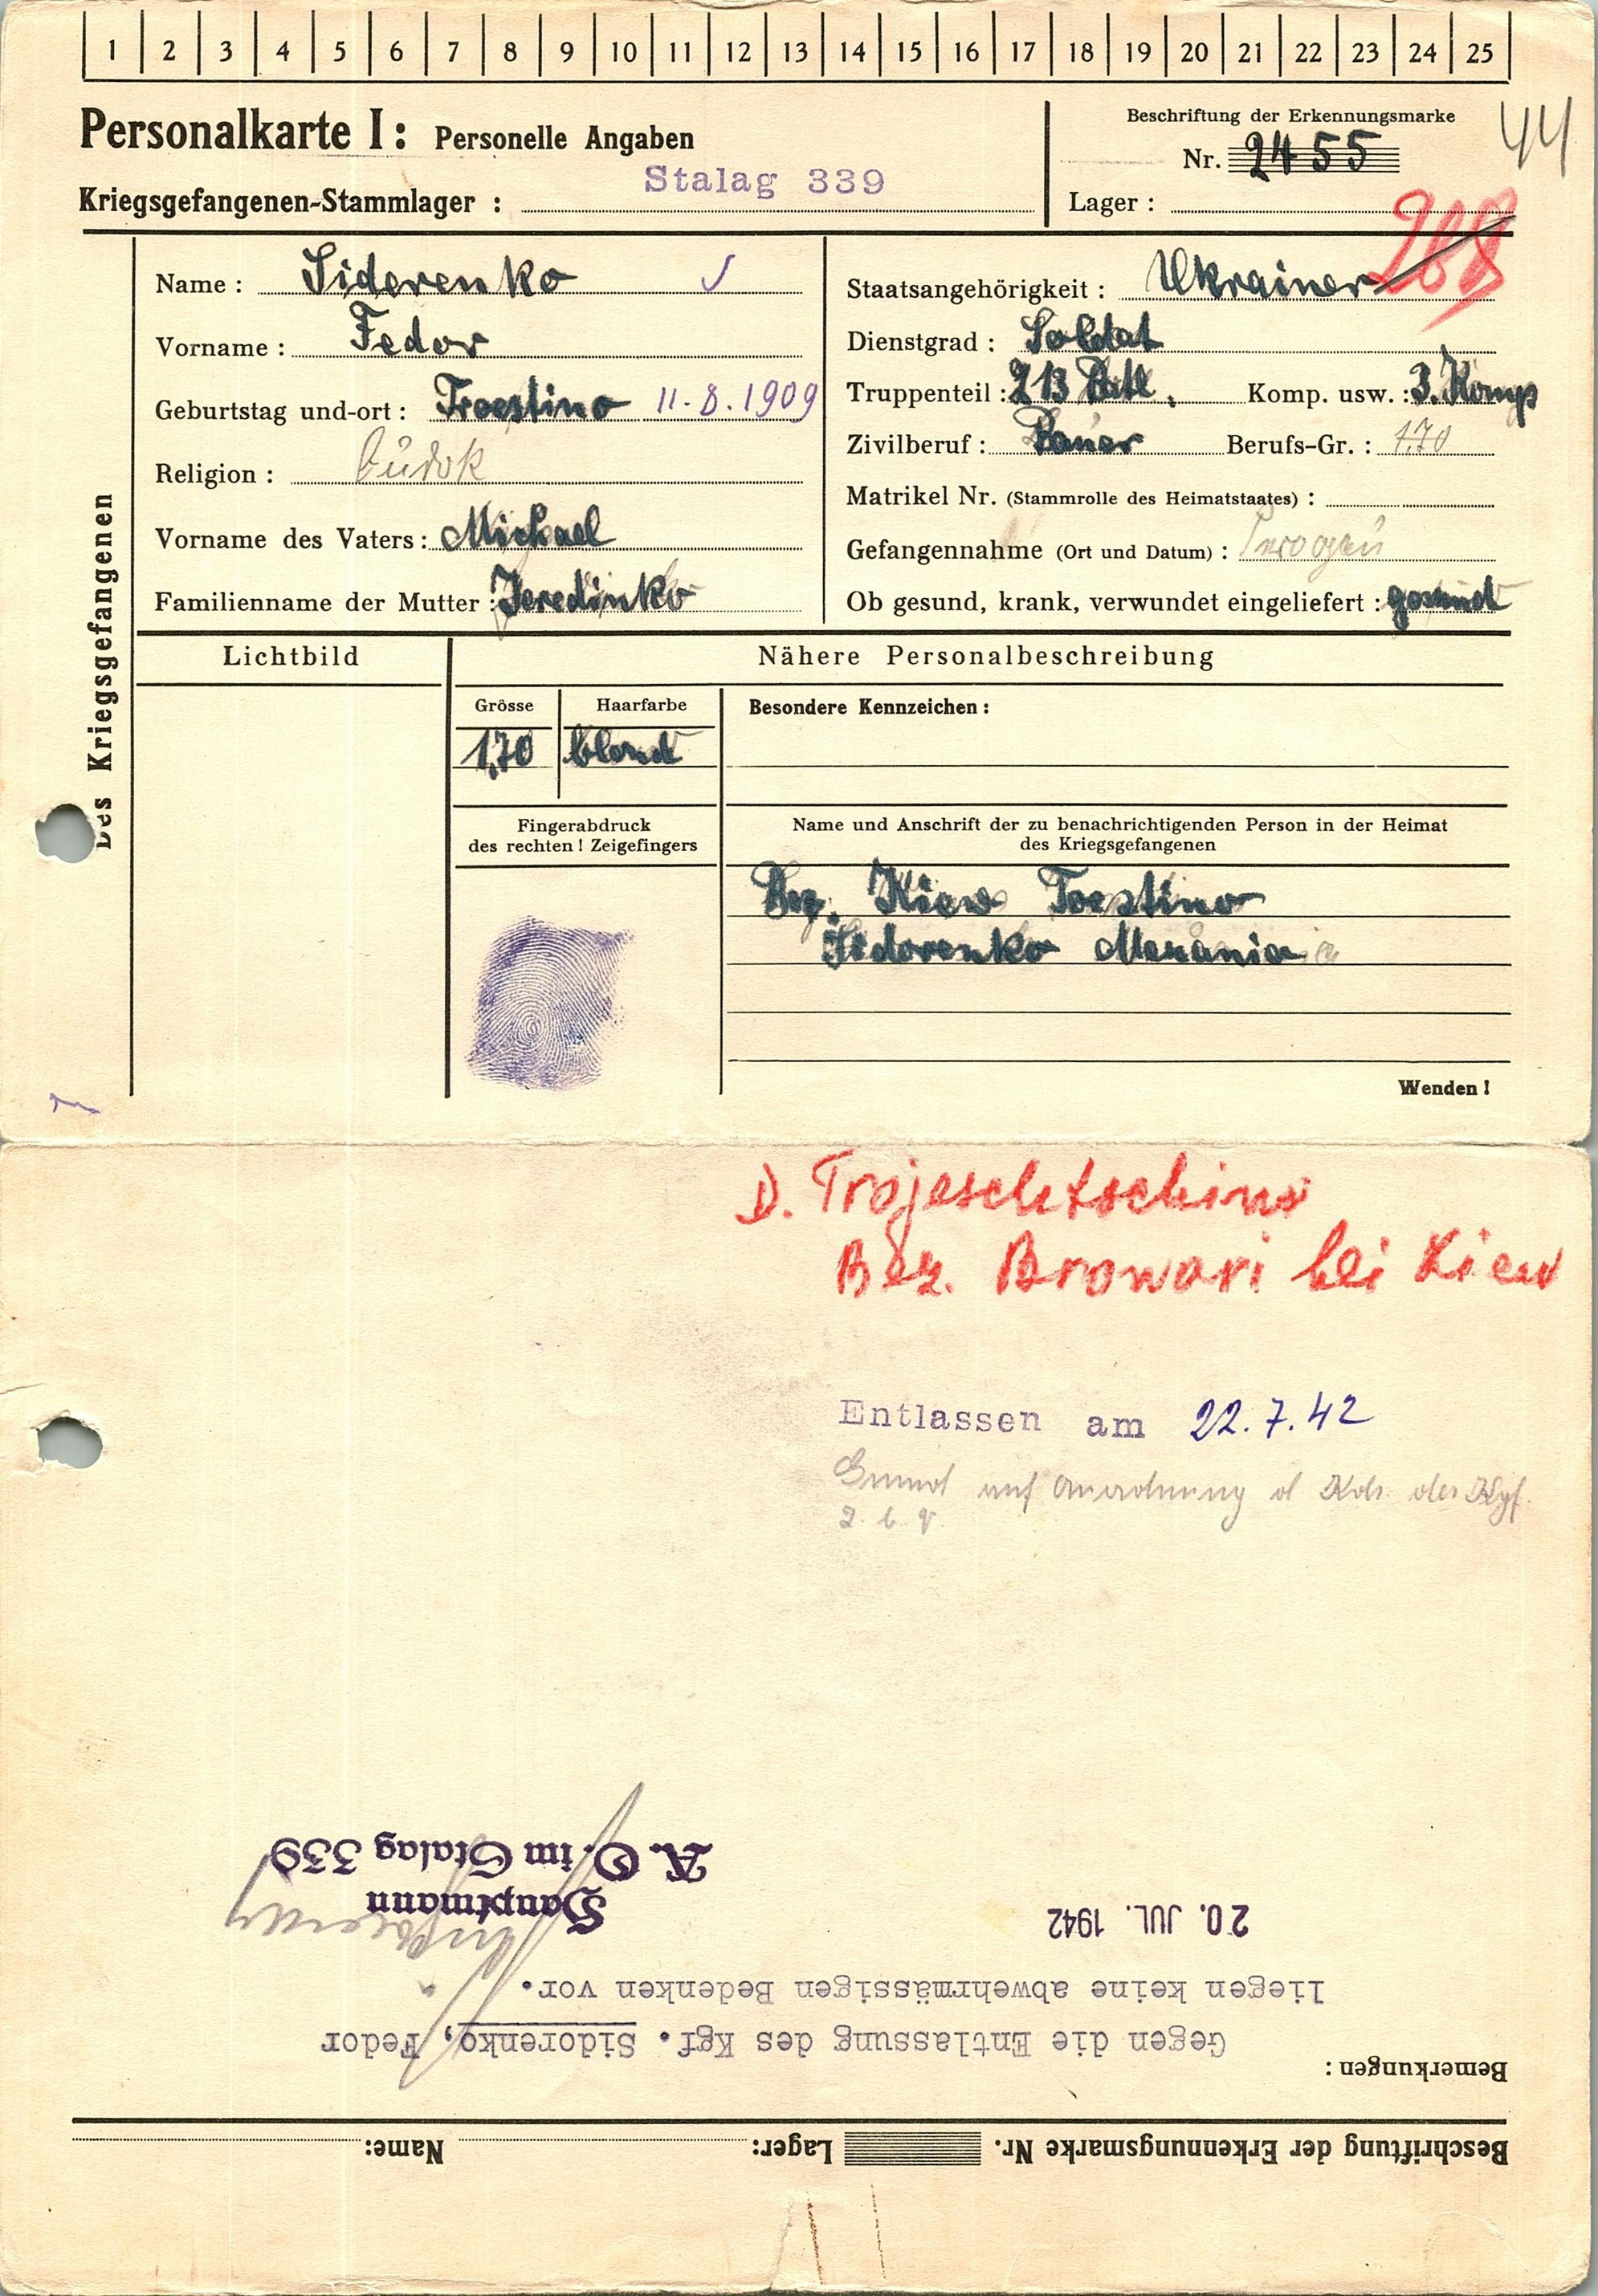 1 2 3 4 5 6 7 8 9 10 11 12 13 14 15 16 17 18 19 20 21 22 23 24 25
Personalkarte I: Personelle Angaben
Beschriftung der Erkennungsmarke
44
Nr. 2455
Stalag 339
Kriegsgefangenen-Stammlager :
Lager :
288
Des Kriegsgefangenen
Name : Siderenko
Vorname : Fedor
Geburtstag und-ort : Troestino 11.8.1909
Religion :
Vorname des Vaters : Michael
Familienname der Mutter : Jeredinko
Staatsangehörigkeit : Ukrainer
Dienstgrad : Soldat
Truppenteil : 213 Batl. Komp. usw. : 3. Komp
Zivilberuf : Bauer Berufs-Gr. : 1.70
Matrikel Nr. (Stammrolle des Heimatstaates) :
Gefangennahme (Ort und Datum) :
Ob gesund, krank, verwundet eingeliefert : gesund
Lichtbild
Nähere Personalbeschreibung
Grösse Haarfarbe
1,70 blond
Besondere Kennzeichen :
Fingerabdruck
des rechten ! Zeigefingers
Name und Anschrift der zu benachrichtigenden Person in der Heimat
des Kriegsgefangenen
Bez. Kiew Toestino
Sidorenko
Wenden !
D. Trojeschtschino
Bez. Browari bei Kiew
Entlassen am 22.7.42
Grund auf Anordnung d Kdr. der Kgf.
z. b. V.
Beschriftung der Erkennungsmarke Nr. Lager: Name:
Bemerkungen :
Gegen die Entlassung des Kgf. Sidorenko, Fedor
liegen keine abwehrmässigen Bedenken vor.
20. JUL. 1942
Hauptmann
A. O. im Stalag 339